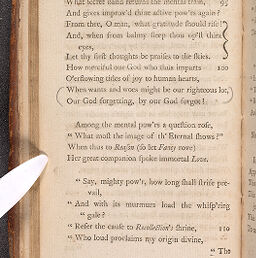 What secret hand returns the mental train,  95
And gives improv'd thine active pow'rs again?
From thee, O man, what gratitude should rise!
And, when from balmy sleep thou op'st thine
eyes,
Let thy first thoughts be praises to the skies.
How merciful our God who thus imparts  100
O'erflowing tides of joy to human hearts,
When wants and woes might be our righteous lot,
Our God forgetting, by our God forgot!
Among the mental pow'rs a question rose,
" What most the image of th' Eternal shows?"
When thus to Reason (so let Fancy rove)
Her great companion spoke immortal Love.
" Say, mighty pow'r, how long shall strife pre-
vail,
" And with its murmurs load the whisp'ring
" gale?
" Refer the cause to Recollection's shrine,  110
" Who loud proclaims my origin divine,
" The